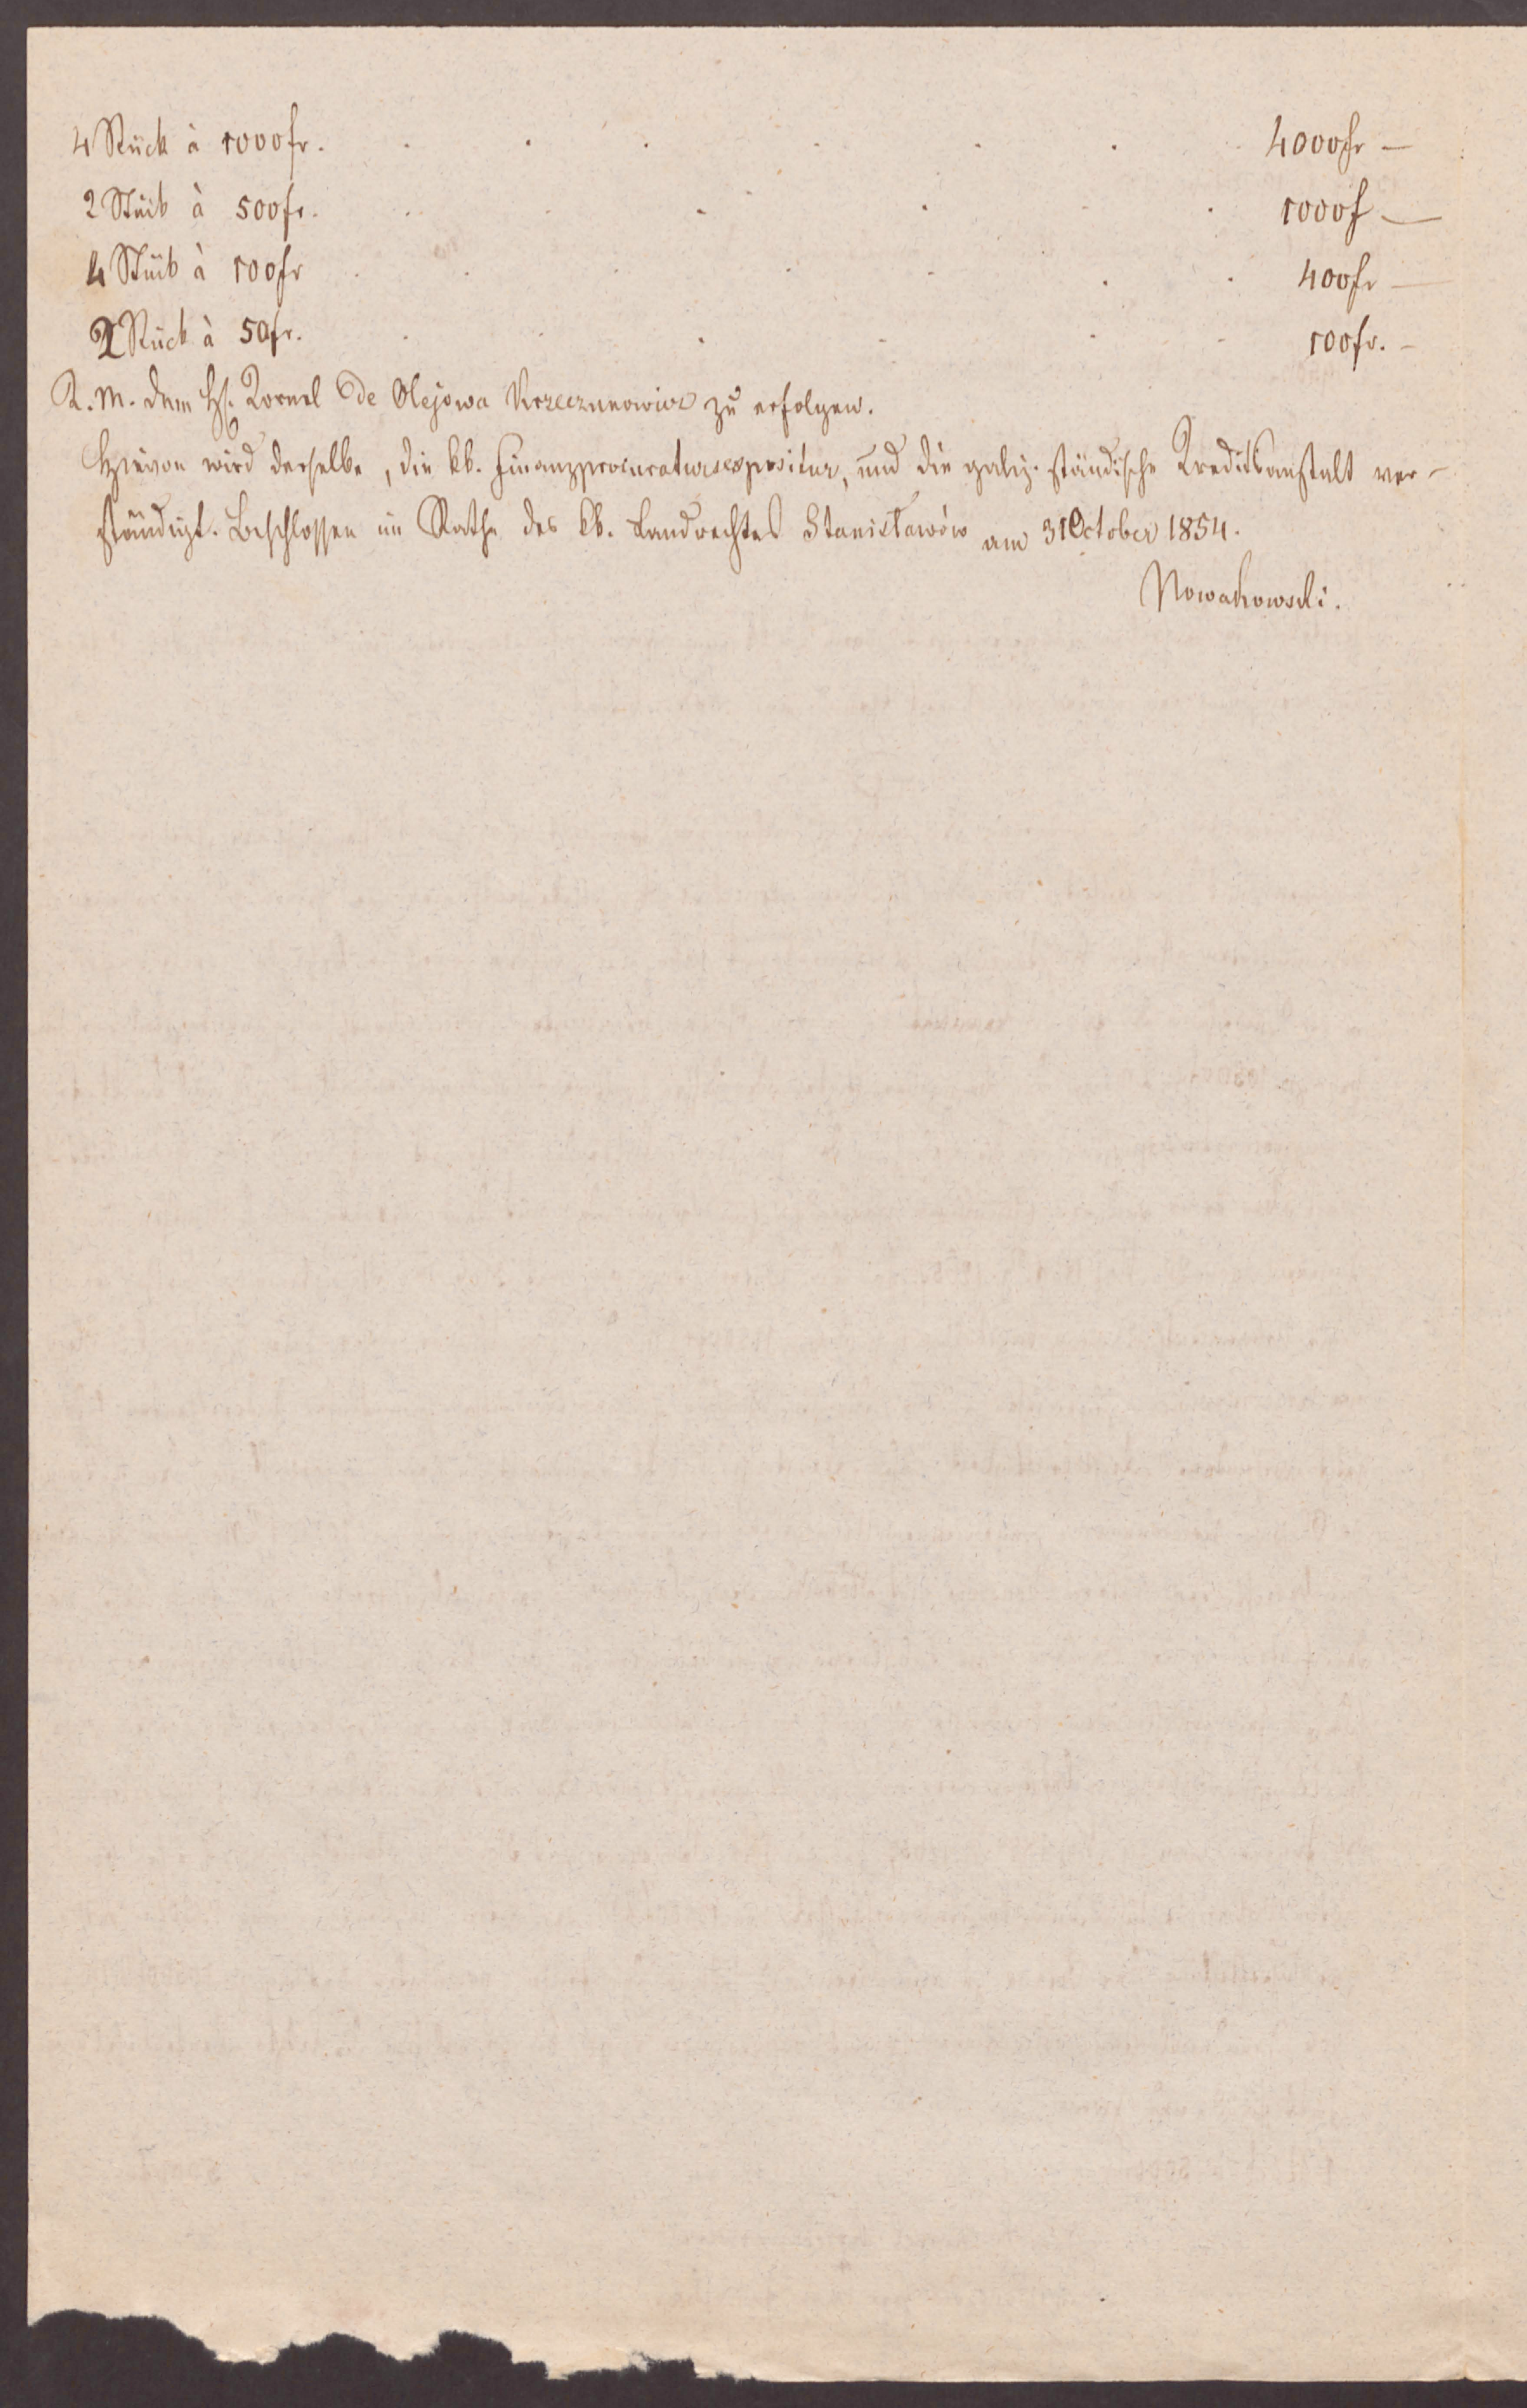 4 Stück à 1000 fr. . . . . . . 4000 fr —
2 Stück à 500 fr. . . . . . . 1000 f —
4 Stück à 100 fr . . . . . . . 400 fr —
2 Stück à 50 fr. . . . . . 100 fr. —
K. M. dem H. Kornel de Olejowa Krzeczunowicz zu erfolgen.
Hievon wird derselbe, die kk. Finanzprocuratursexpositur, und die galiz. ständische Kreditsanstalt ver-
ständigt. Beschlossen im Rathe des kk. Landrechtes Stanisławów am 31 October 1854.
Nowakowski.